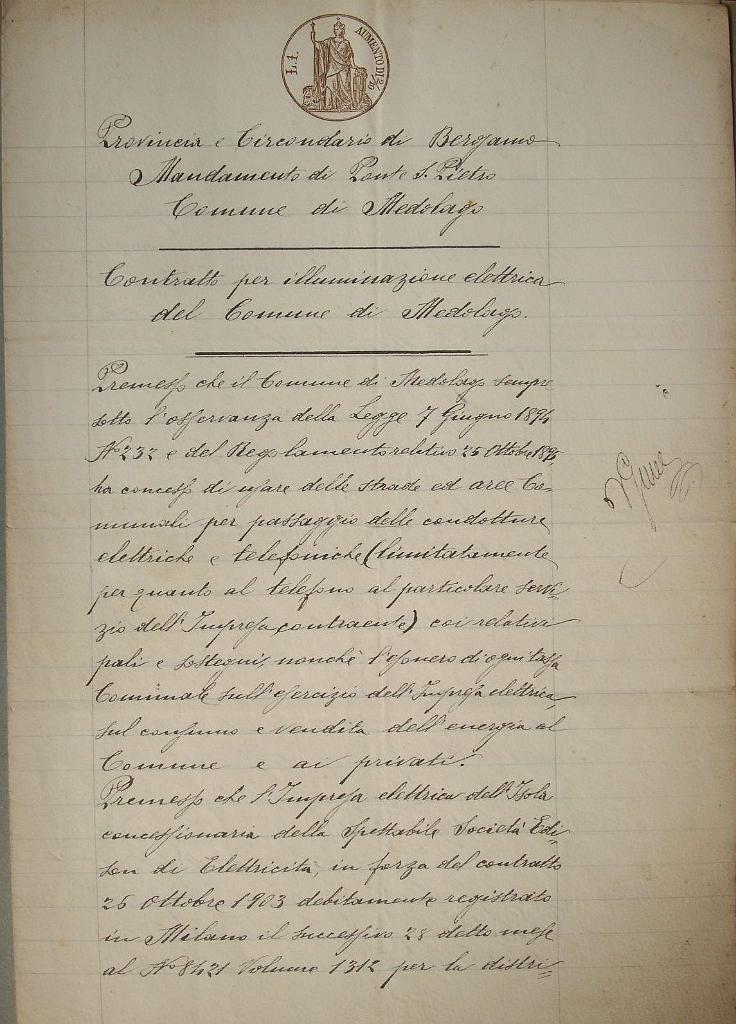 L. 1.
AUMENTO DI 2/10
Provincia e Circondario di Bergamo
Mandamento di Ponte S. Pietro
Comune di Medolago
Contratto per illuminazione elettrica
del Comune di Medolago.
Premesso che il Comune di Medolago sempre
sotto l'osservanza della Legge 7 Giugno 1894
No 232 e del Regolamento relativo 25 Ottobre 1895,
ha concesso di usare delle strade ed aree Co-
munali per passaggio delle condotture
elettriche e telefoniche (limitatamente
per quanto al telefono al particolare servi-
zio dell'Impresa contraente) coi relativi
pali e sostegni, nonchè l'esonero di ogni tassa
Comunale sull'esercizio dell'Impresa elettrica,
sul consumo e vendita dell'energia al
Comune e ai privati.
Premesso che l'Impresa elettrica dell'Isola
concessionaria della Spettabile Società Edi-
son di Elettricità, in forza del contratto
26 Ottobre 1903 debitamente registrato
in Milano il successivo 28 detto mese
al No 8421 Volume 1312 per la distri-